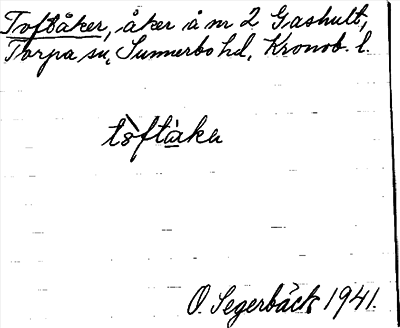 Toftåker, åker å nr 2 Gashult,
Torpa sn, Sunnerbo hd, Kronob. l.
tòftàka
O. Segerbäck 1941.